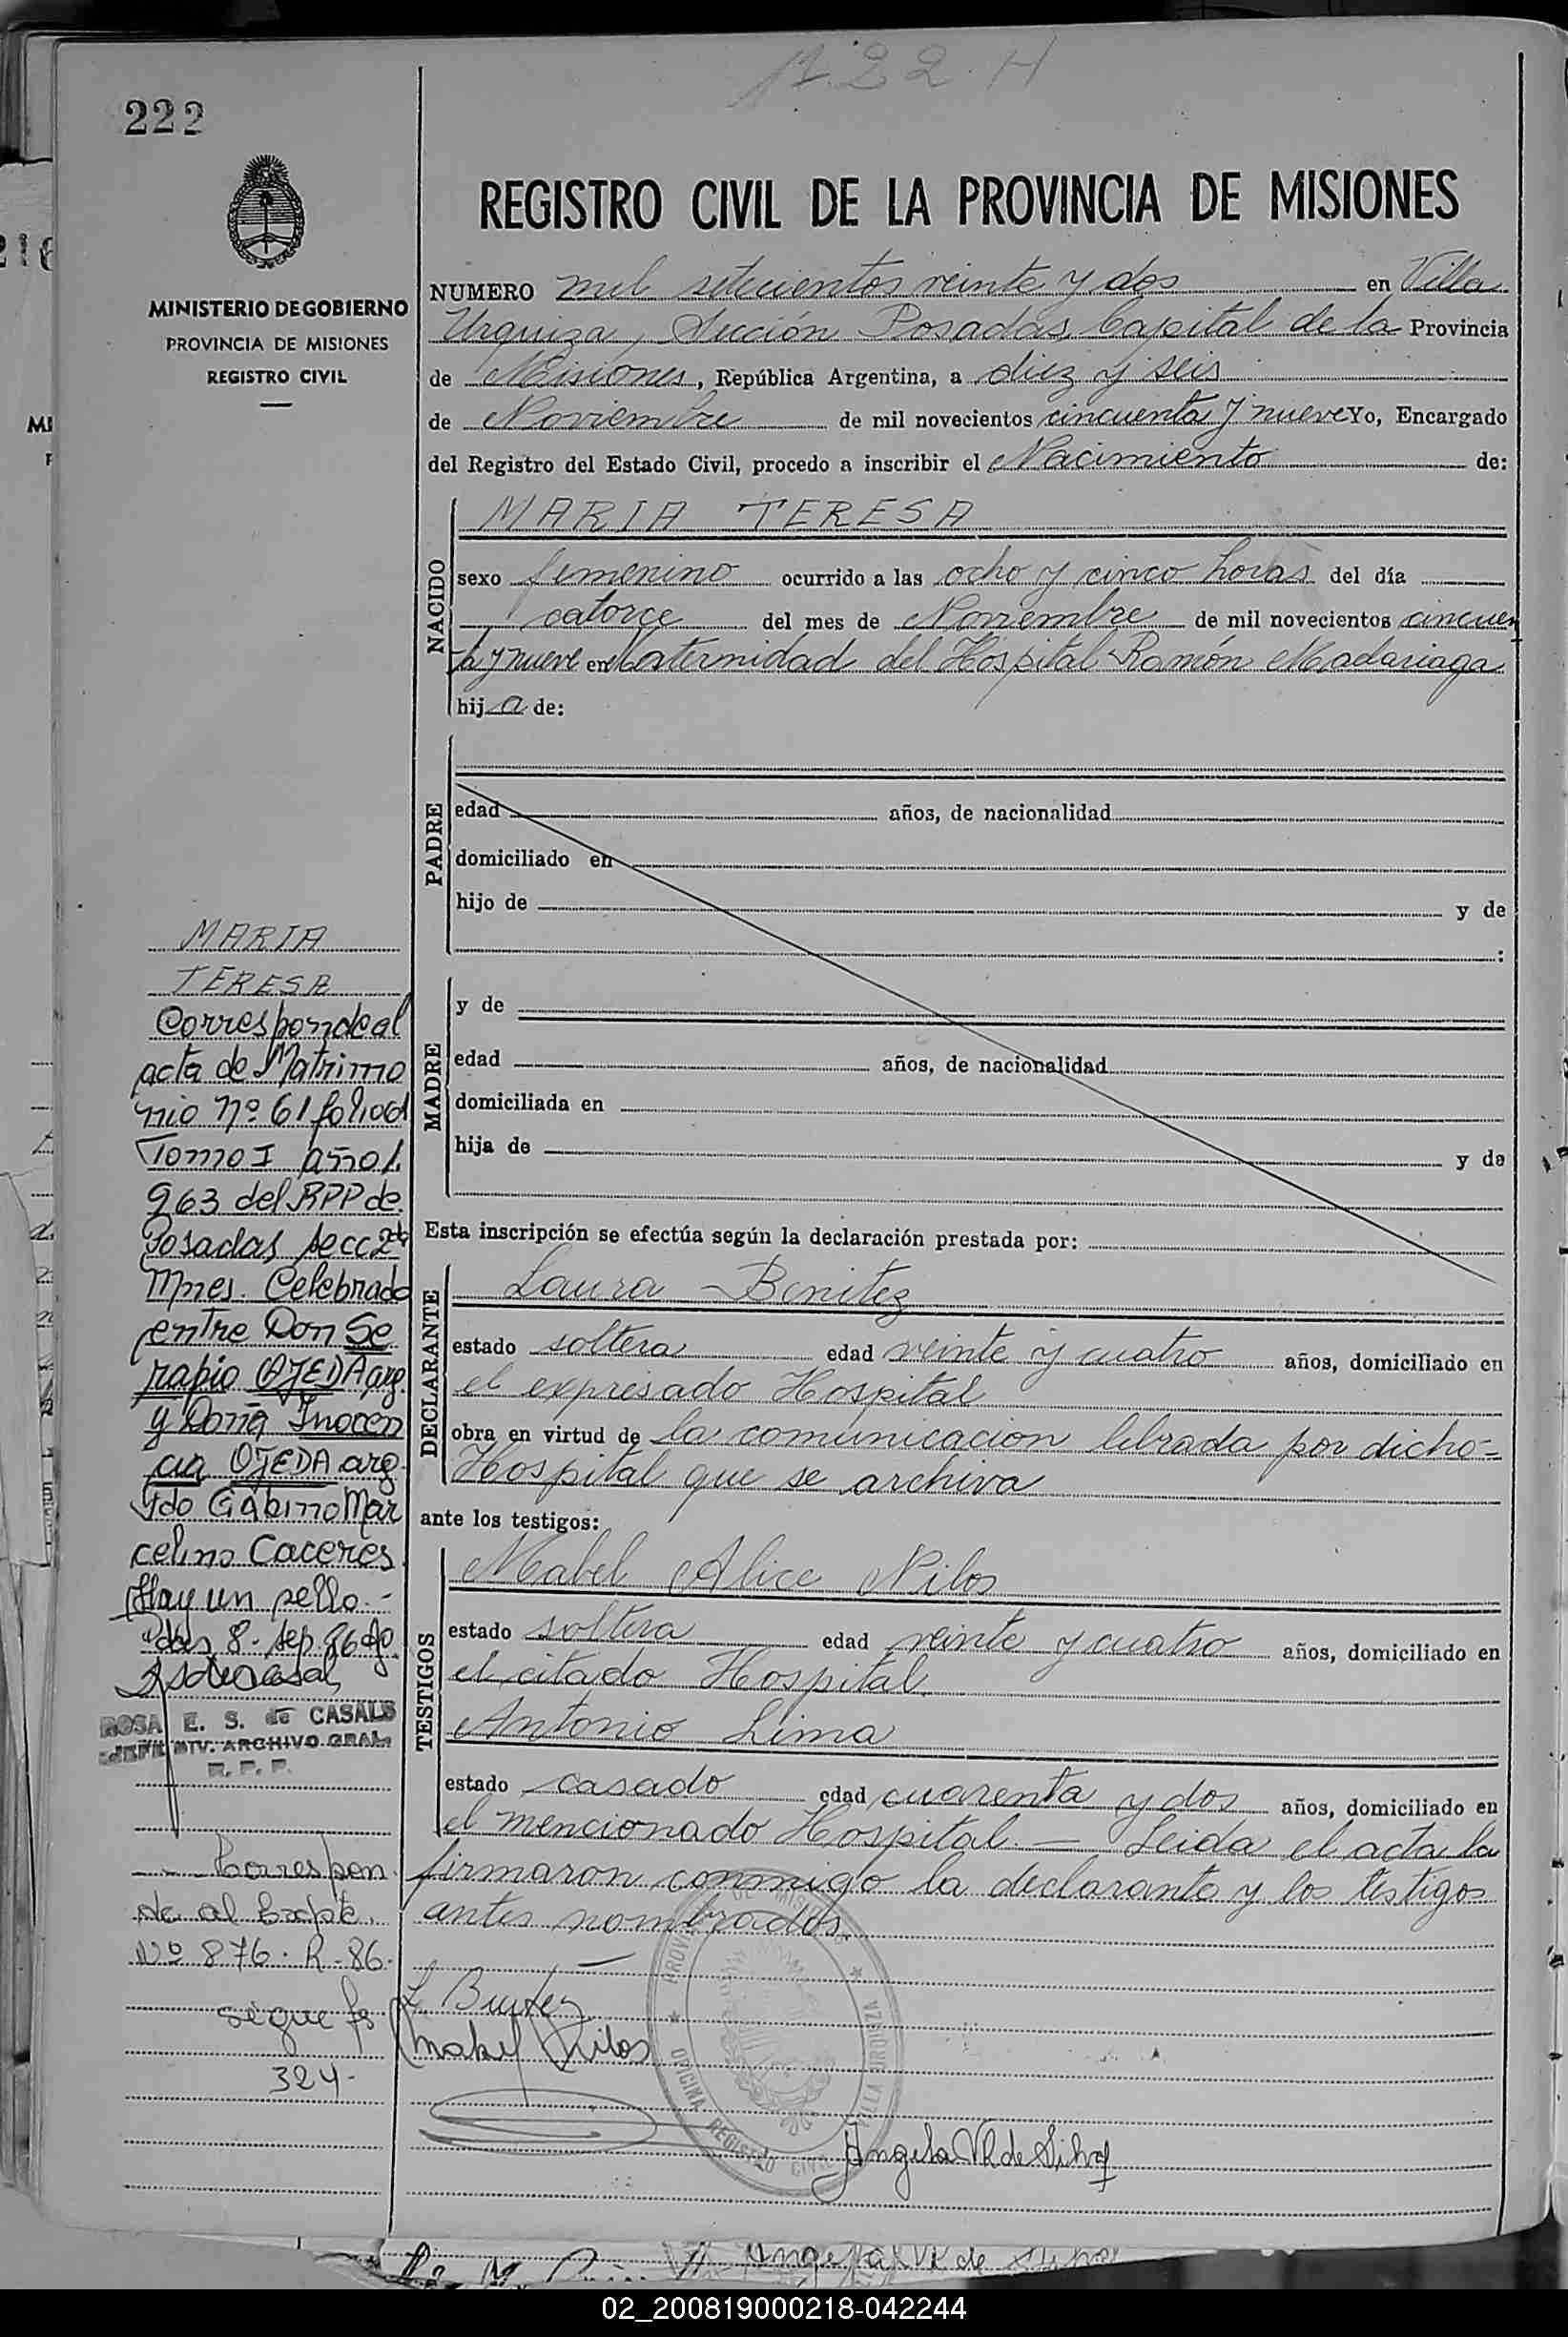 222
REGISTRO CIVIL DE LA PROVINCIA DE MISIONES
MINISTERIO DE GOBIERNO
PROVINCIA DE MISIONES
REGISTRO CIVIL
NUMERO mil setecientos veinte y dos en Villa
Urquiza, Sección Posadas, Capital de la Provincia
de Misiones, República Argentina, a diez y seis
de Noviembre de mil novecientos cincuenta y nueve Yo, Encargado
del Registro del Estado Civil, procedo a inscribir el Nacimiento de:
NACIDO
MARIA TERESA
sexo femenino ocurrido a las ocho y cinco horas del día
catorce del mes de Noviembre de mil novecientos cincuen
ta y nueve en Maternidad del Hospital Ramón Madariaga
hija de:
PADRE
edad años, de nacionalidad
domiciliado en
hijo de y de
:
MADRE
y de
edad años, de nacionalidad
domiciliada en
hija de y de
Esta inscripción se efectúa según la declaración prestada por:
DECLARANTE
Laura Benitez
estado soltera edad veinte y cuatro años, domiciliado en
el expresado Hospital
obra en virtud de la comunicacion librada por dicho
Hospital que se archiva
ante los testigos:
TESTIGOS
Mabel Alice Nilos
estado soltera edad veinte y cuatro años, domiciliado en
el citado Hospital.
Antonio Lima
estado casado edad cuarenta y dos años, domiciliado en
el mencionado Hospital. — Leida el acta la
firmaron conmigo la declarante y los testigos
antes nombrados.
L Benitez
Mabel Nilos
Angela V. de Silva
OFICINA REGISTRO CIVIL
VILLA URQUIZA
MARIA
TERESA
Corresponde al
acta de Matrimo
nio Nº 61 folio 61
Tomo I año 1.
963 del RPP de
Posadas secc 2da
Mnes. Celebrado
entre Don Se
rapio OJEDA arg.
y Doña Inocen
cia OJEDA arg.
Fdo Gabino Mar
celino Caceres.
Hay un sello.-
Pdas 8. sep. 86
ROSA E. S. de CASALS
JEFE DIV. ARCHIVO GRAL.
R. P. P.
Correspon
de al Expte.
Nº 876. R-86.
sigue fs
324-
02_200819000218-042244